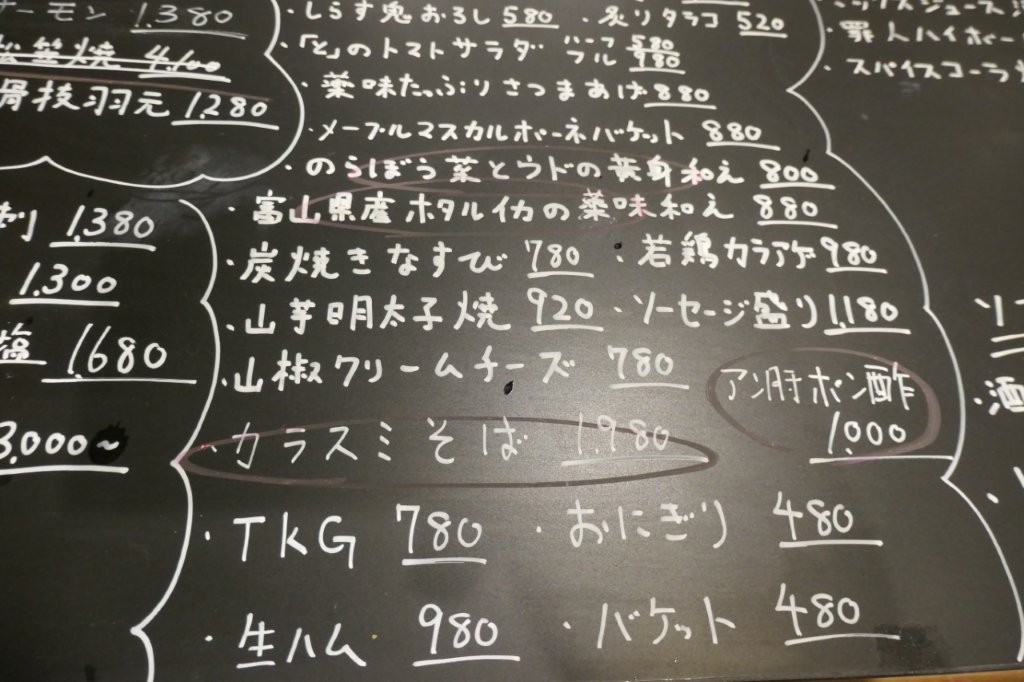 ーモン 1.380
笠焼 4.100
骨技羽元 1.280
刺 1.380
1.300
塩 1.680
3.000~
・しらす鬼おろし 580 ・炙りタラコ 520
・「と」のトマトサラダ ハーフ 580 フル 980
・薬味たっぷりさつまあげ 880
・メープルマスカルポーネバケット 880
・のらぼう菜とウドの黄身和え 800
・富山県産ホタルイカの薬味和え 880
・炭焼きなすび 780 ・若鶏カラアゲ 980
・山芋明太子焼 920 ・ソーセージ盛り 1.180
・山椒クリームチーズ 780
アン肝ポン酢
1.000
・カラスミそば 1.980
・TKG 780 ・おにぎり 480
・生ハム 980 ・バケット 480
・罪人ハイボー
・スパイスコーラ
ソー
・酒